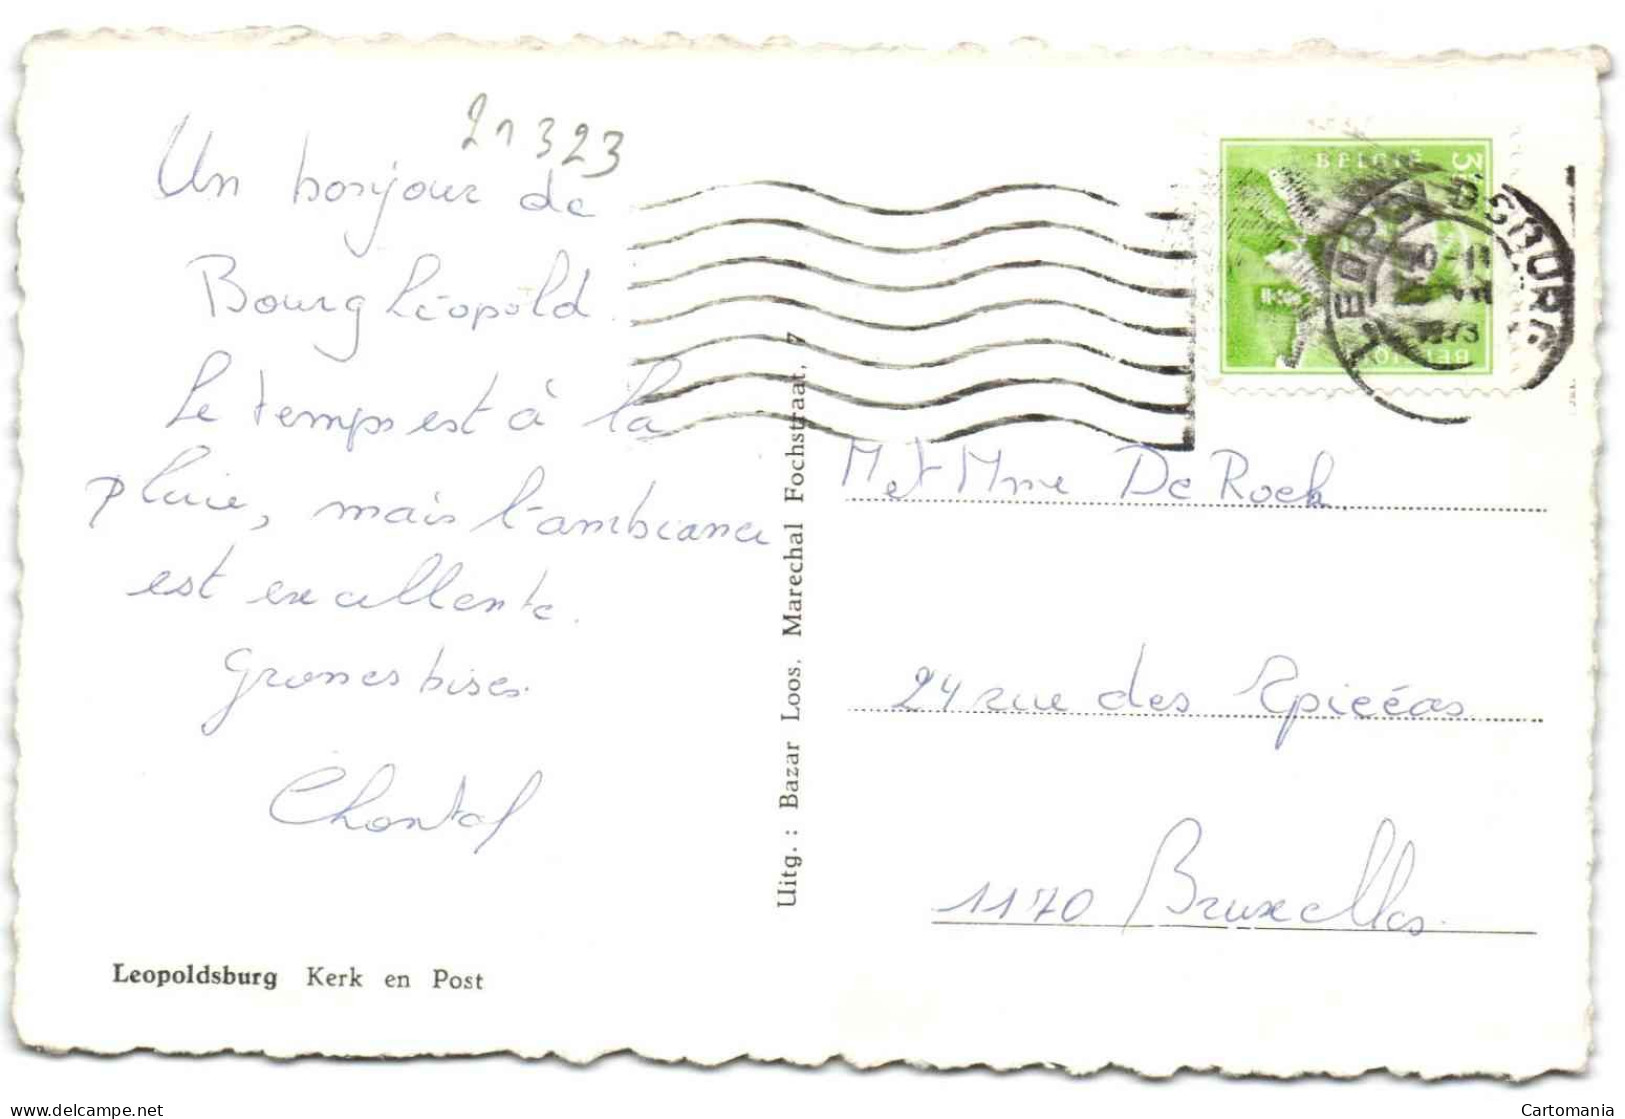 21323
Un bonjour de
Bourg Léopold.
Le temps est à la
pluie, mais l'ambiance
est excellente.
Grosses bises.
Chantal
Leopoldsburg Kerk en Post
Uitg. : Bazar Loos. Marechal Fochstraat, 7
BELGIE
3F
LEOPOLDSBURG
10-11
VII
1973
BELGIQUE
M et Mme De Roeck
24 rue des Epicéas
1170 Bruxelles
delcampe.net
Cartomania